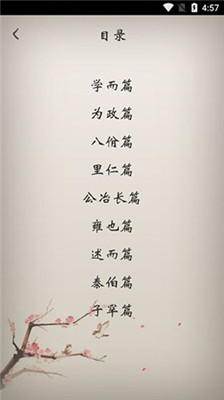 4:57
目录
学而篇
为政篇
八佾篇
里仁篇
公冶长篇
雍也篇
述而篇
泰伯篇
子罕篇